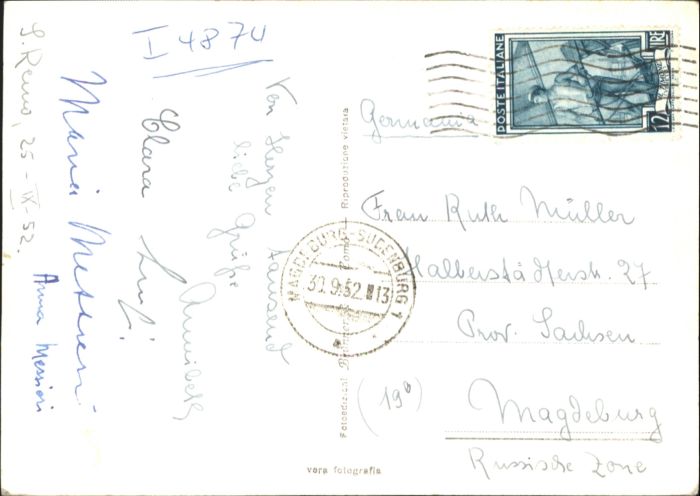 I 4874
S. Remo, 25-IX-52.
Von Herzen tausend
liebe Grüße
Annibelk
Clara Luigi
Maria Messieri
Anna Messieri
POSTE ITALIANE
LIRE
12
Germania
Frau Ruth Müller
Halberstädterstr. 27
Prov. Sachsen
(19b)
Magdeburg
Russische Zone
MAGDEBURG-SUDENBURG 1
30.9.52. 13
Riproduzione vietata
vera fotografia